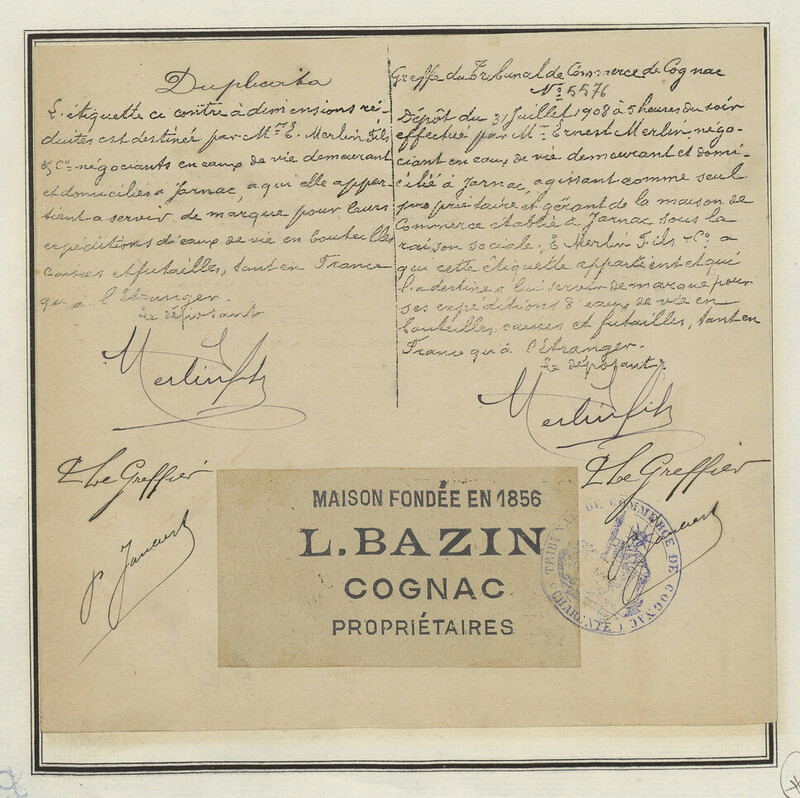 Duplicata
L'étiquette ci contre à dimensions ré-
duites est destinée par Mr. E. Merlin Fils
& Cie négociants en eaux de vie demeurant
et domiciliés à Jarnac, a qui elle appar-
tient a servir de marque pour leurs
expéditions d'eaux de vie en bouteilles
caisses et futailles, tant en France
qu'à l'Etranger.
Le déposant
Merlin fils
P Le Greffier
Greffe du Tribunal de Commerce de Cognac
No 5576
Dépôt du 31 Juillet 1908 à 5 heures du soir
effectué par Mr. Ernest Merlin, négo-
ciant en eaux de vie demeurant et domi-
cilié à Jarnac, agissant comme seul
propriétaire et gérant de la maison de
Commerce établie à Jarnac sous la
raison sociale: E Merlin Fils & Co. a
qui cette étiquette appartient et qui
l'a destine a lui servir de marque pour
ses expéditions d'eaux de vie en
bouteilles, caisses et futailles, tant en
France qu'à l'étranger.
Le déposant.
Merlin fils
P Le Greffier
MAISON FONDÉE EN 1856
L. BAZIN
COGNAC
PROPRIÉTAIRES
TRIBUNAL DE COMMERCE DE COGNAC
(CHARENTE)